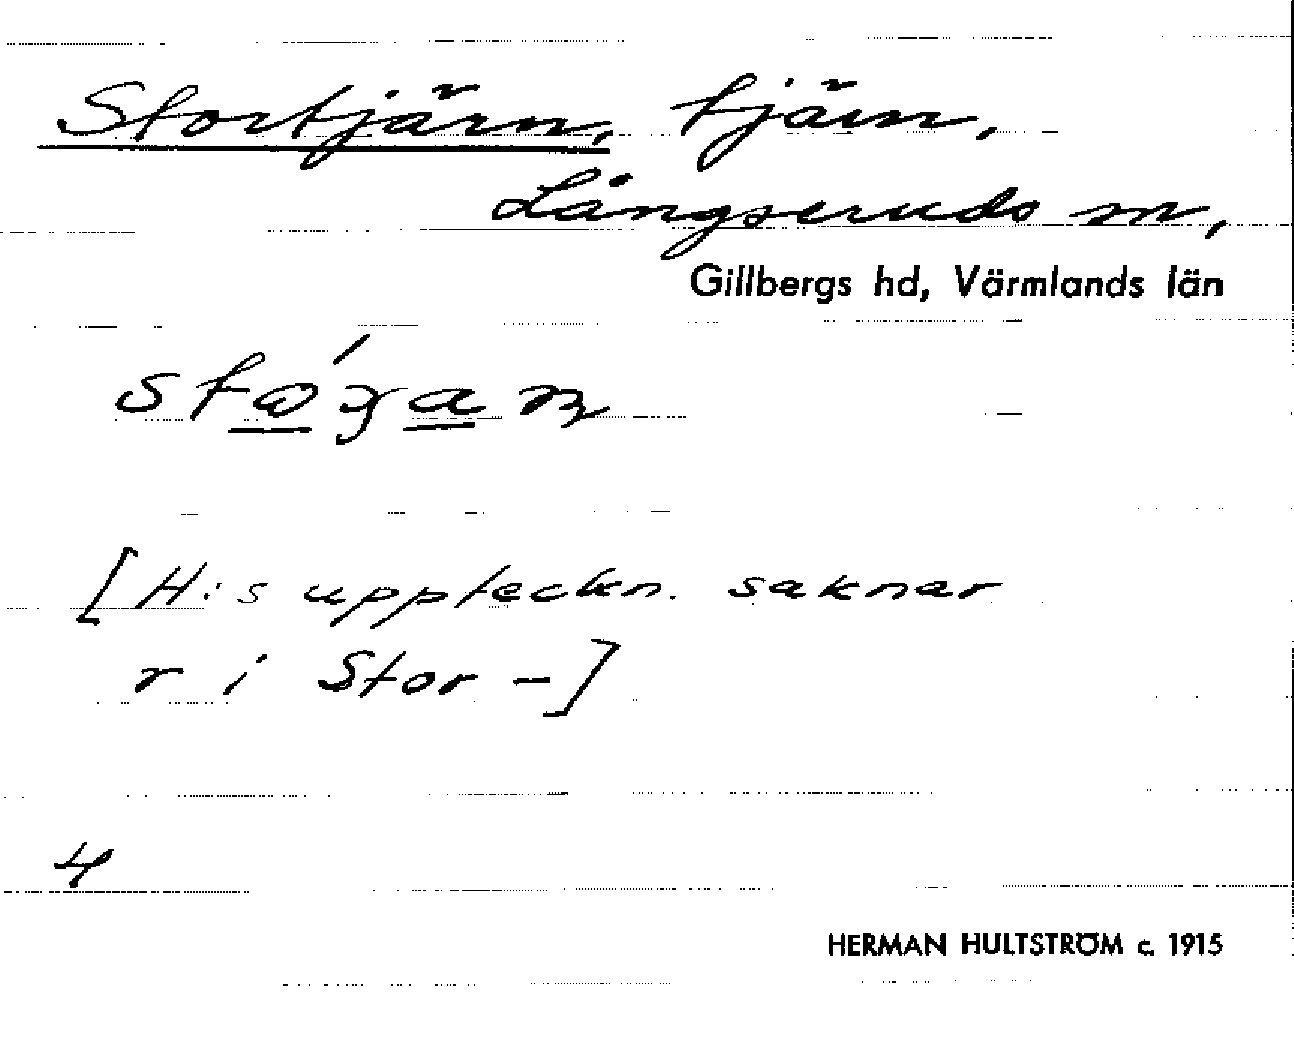 Stortjärn, tjärn,
Långseruds sn,
Gillbergs hd, Värmlands län
[H:s uppteckn. saknar
r i Stor-]
4
HERMAN HULTSTRÖM c. 1915